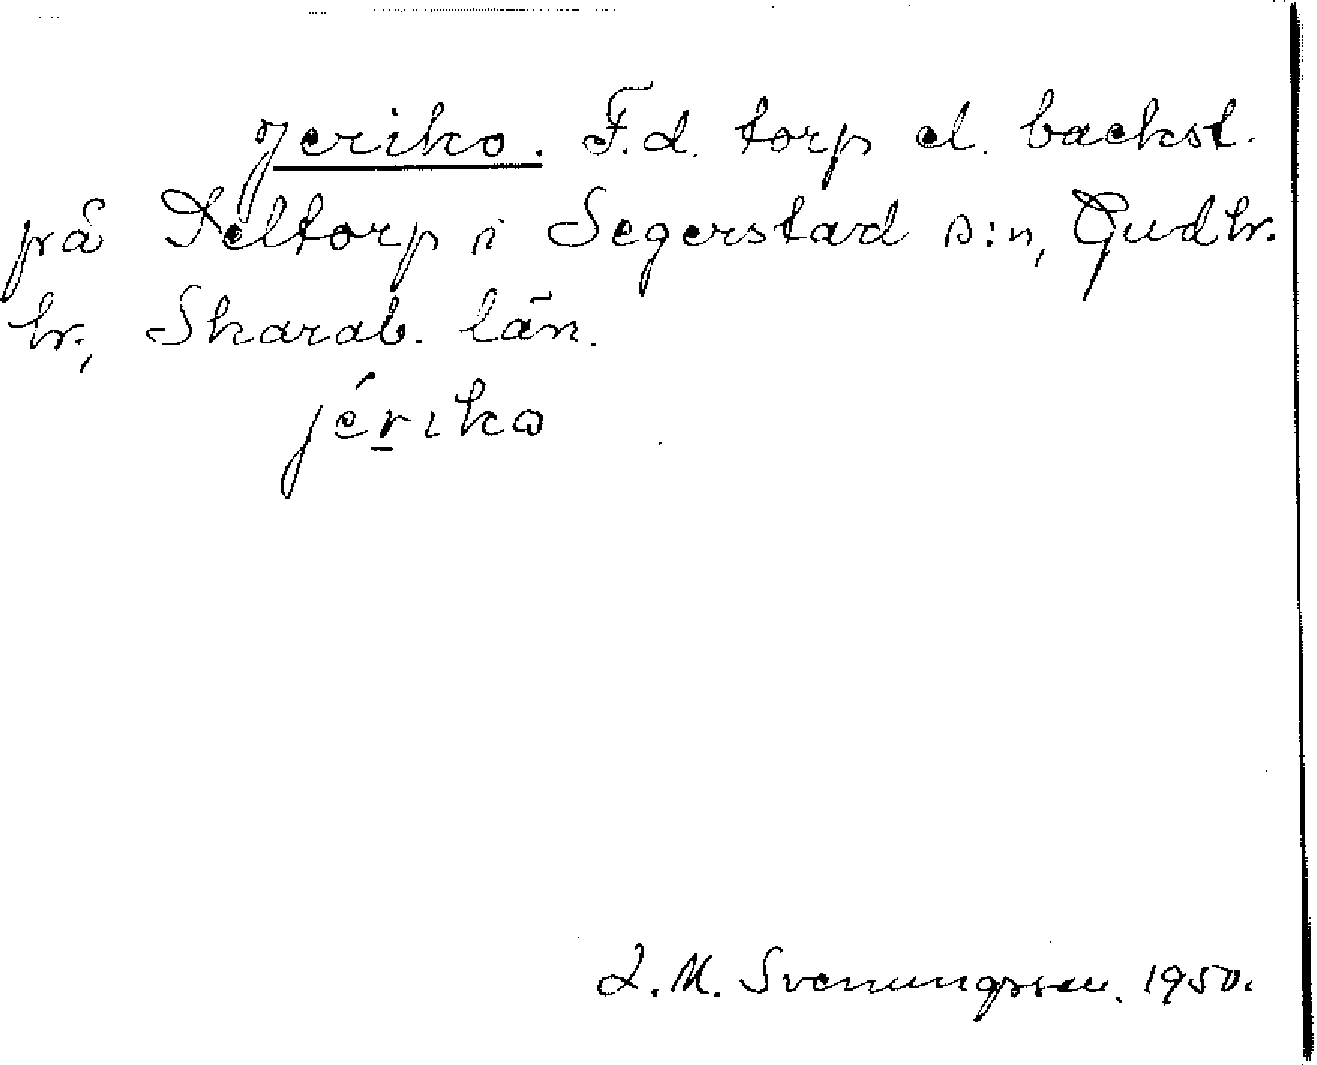 Jeriko. F.d. torp el. backst.
på Deltorp i Segerstad s:n, Gudh.
hr., Skarab. län.
jériko
L. M. Svenungsson. 1950.